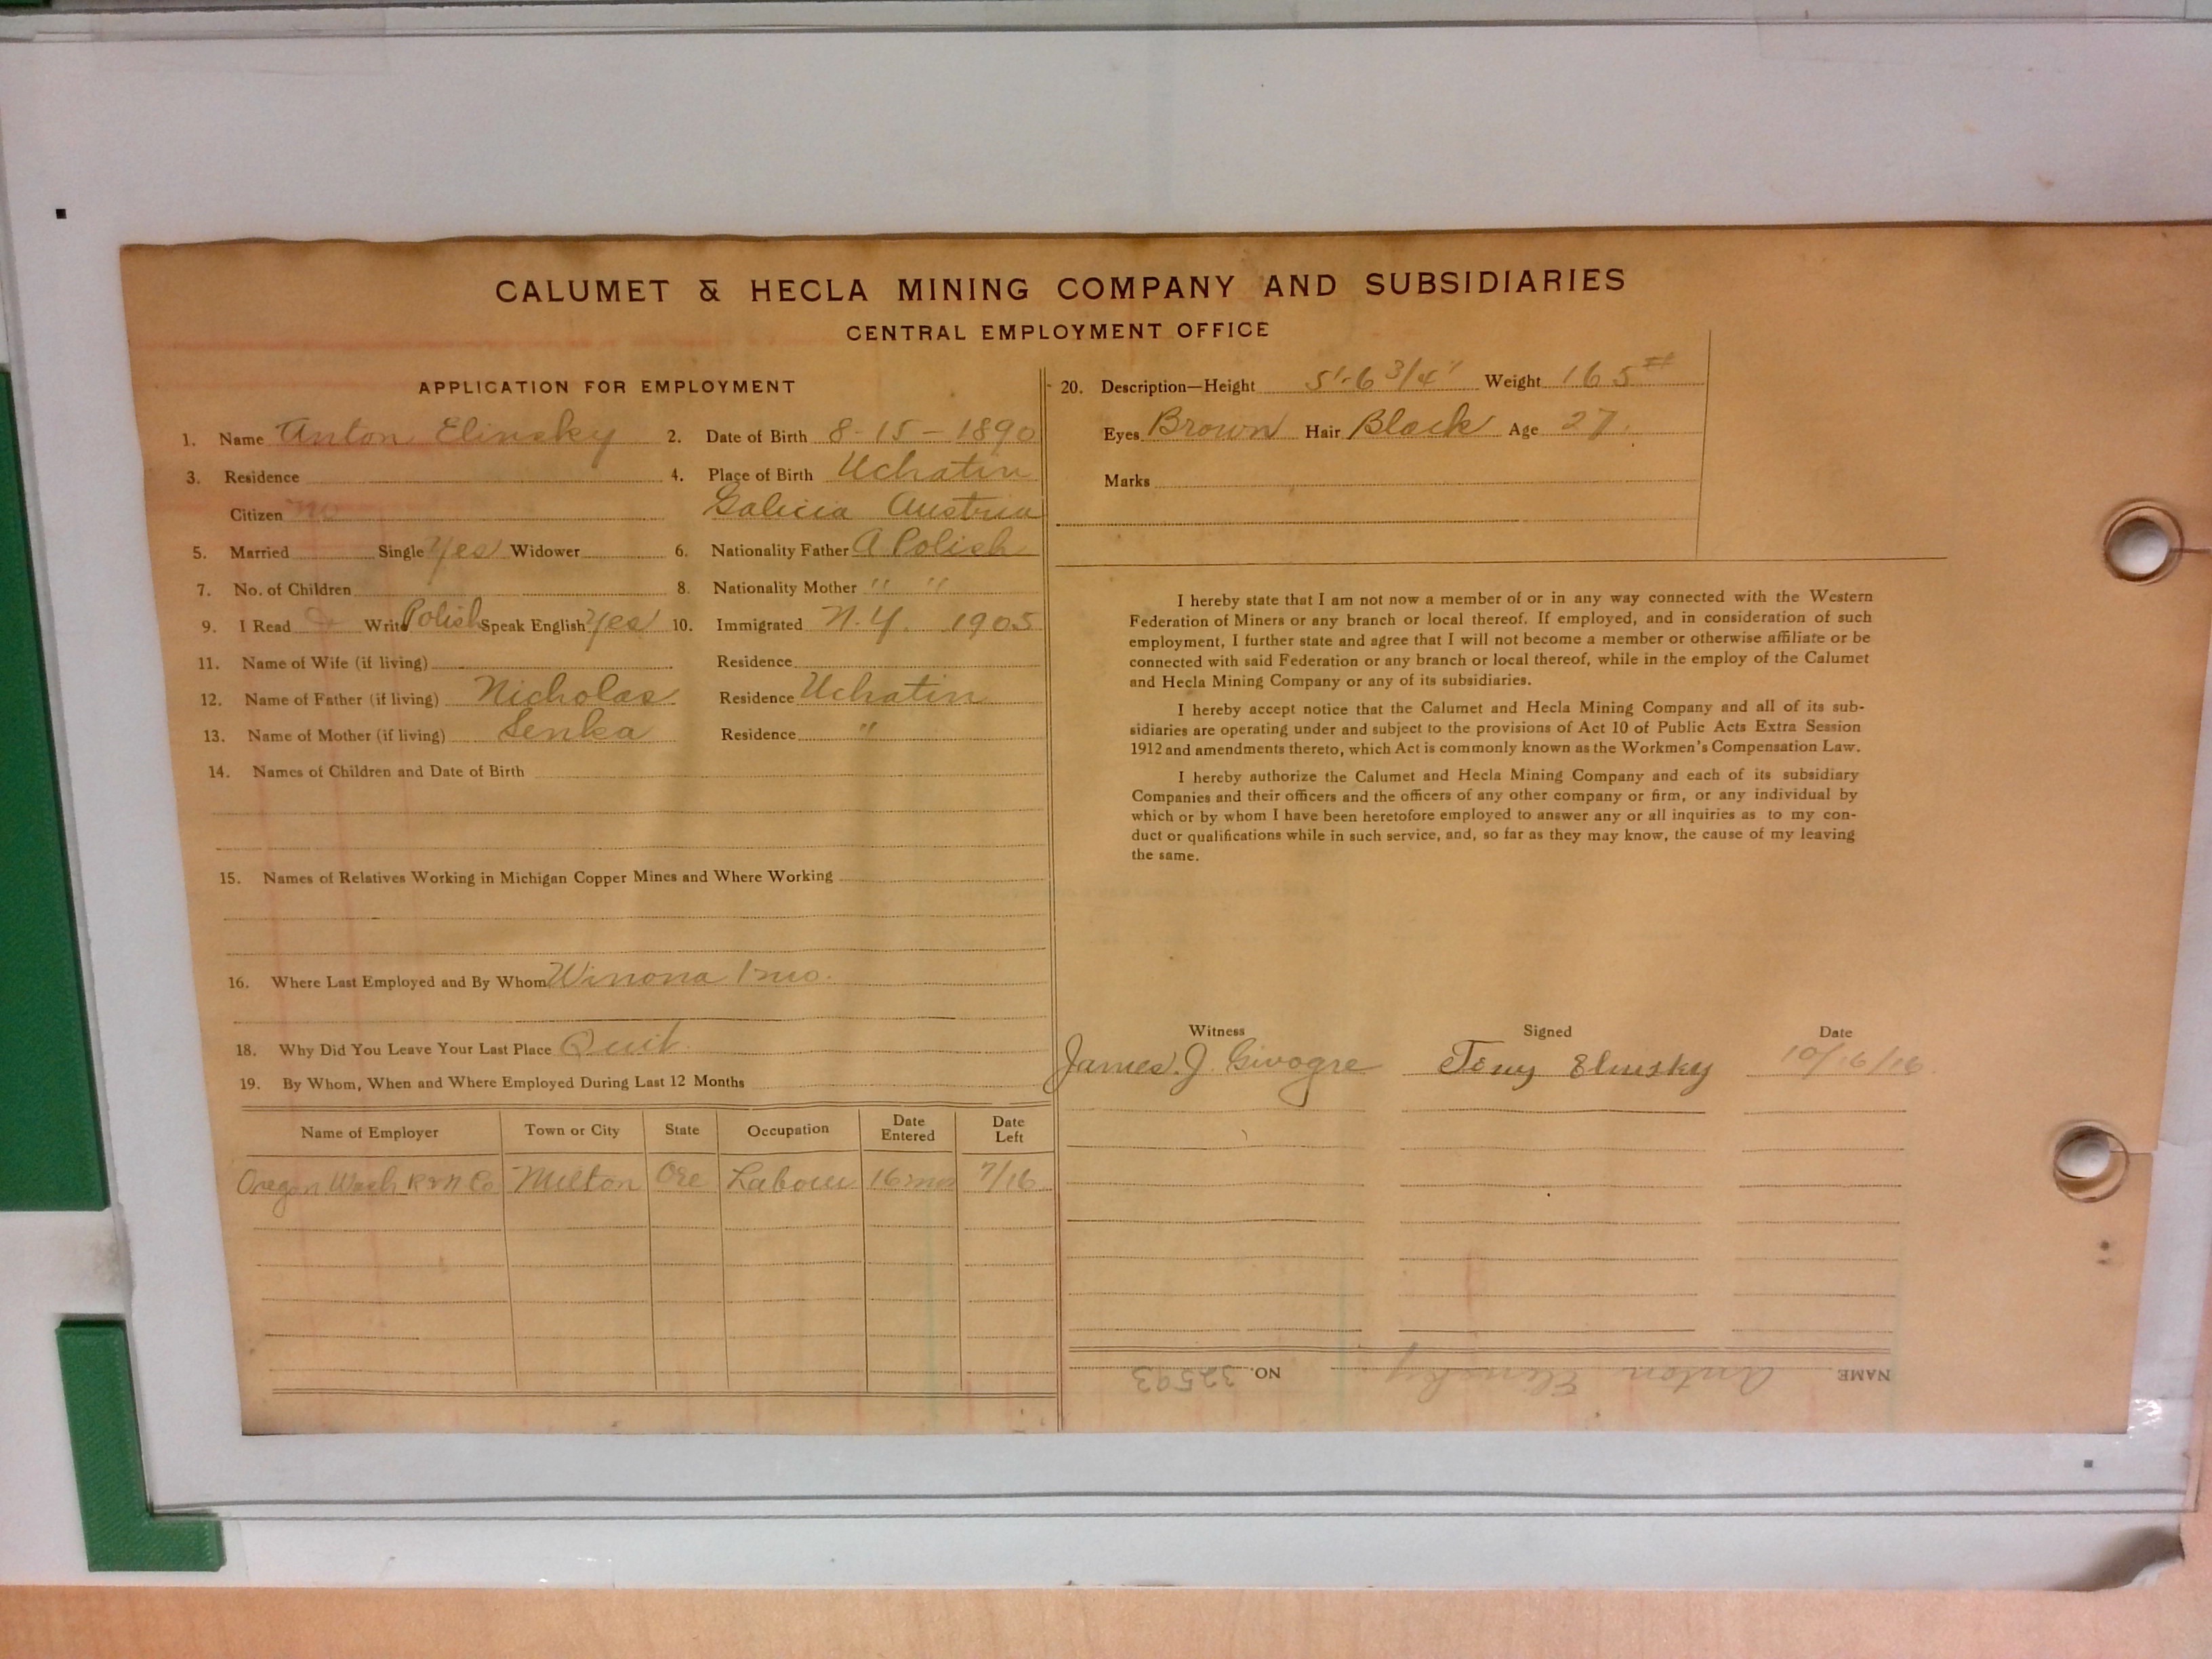 CALUMET & HECLA MINING COMPANY AND SUBSIDIARIES
CENTRAL EMPLOYMENT OFFICE
APPLICATION FOR EMPLOYMENT
1. Name Anton Elinsky 2. Date of Birth 8-15-1890
3. Residence 4. Place of Birth Uchatin
Citizen No Galicia Austria
5. Married Single Yes Widower 6. Nationality Father A. Polish
7. No. of Children 8. Nationality Mother " "
9. I Read Write Polish Speak English Yes 10. Immigrated N.Y. 1905
11. Name of Wife (if living) Residence
12. Name of Father (if living) Nicholas Residence Uchatin
13. Name of Mother (if living) Senka Residence "
14. Names of Children and Date of Birth
15. Names of Relatives Working in Michigan Copper Mines and Where Working
16. Where Last Employed and By Whom Winona 1 mo.
18. Why Did You Leave Your Last Place Quit
19. By Whom, When and Where Employed During Last 12 Months
Name of Employer Town or City State Occupation Date Entered Date Left
Oregon Wash R & N Co Milton Ore Labour 16 mos 7/16
20. Description—Height 5'-6 3/4" Weight 165#
Eyes Brown Hair Black Age 27
Marks
I hereby state that I am not now a member of or in any way connected with the Western
Federation of Miners or any branch or local thereof. If employed, and in consideration of such
employment, I further state and agree that I will not become a member or otherwise affiliate or be
connected with said Federation or any branch or local thereof, while in the employ of the Calumet
and Hecla Mining Company or any of its subsidiaries.
I hereby accept notice that the Calumet and Hecla Mining Company and all of its sub-
sidiaries are operating under and subject to the provisions of Act 10 of Public Acts Extra Session
1912 and amendments thereto, which Act is commonly known as the Workmen's Compensation Law.
I hereby authorize the Calumet and Hecla Mining Company and each of its subsidiary
Companies and their officers and the officers of any other company or firm, or any individual by
which or by whom I have been heretofore employed to answer any or all inquiries as to my con-
duct or qualifications while in such service, and, so far as they may know, the cause of my leaving
the same.
Witness Signed Date
James. J. Givogre Tony Elinsky 10/16/16
NAME Anton Elinsky NO. 32593